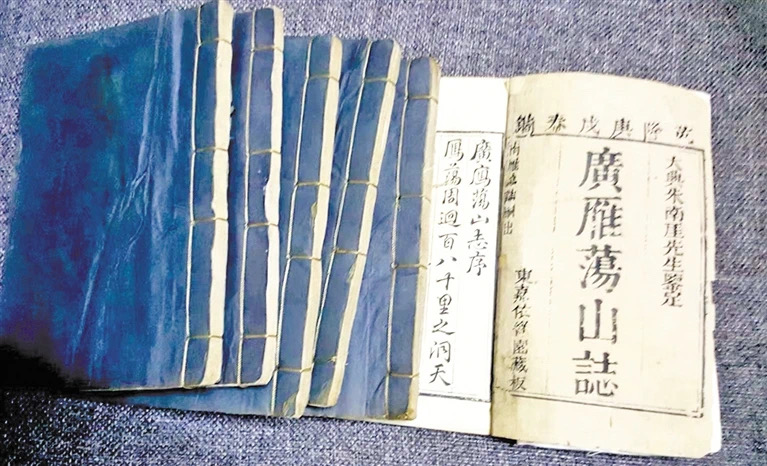 乾隆庚戌春鐫
大興朱南崖先生鑒定
廣雁蕩山誌
南雁蕩誌嗣出
東嘉依綠園藏板
廣鴈蕩山志序
鴈蕩周迴百八十里之洞天